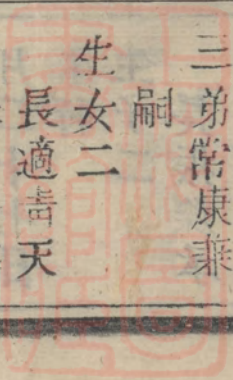 三弟常康兼
嗣
生女二
長適青天